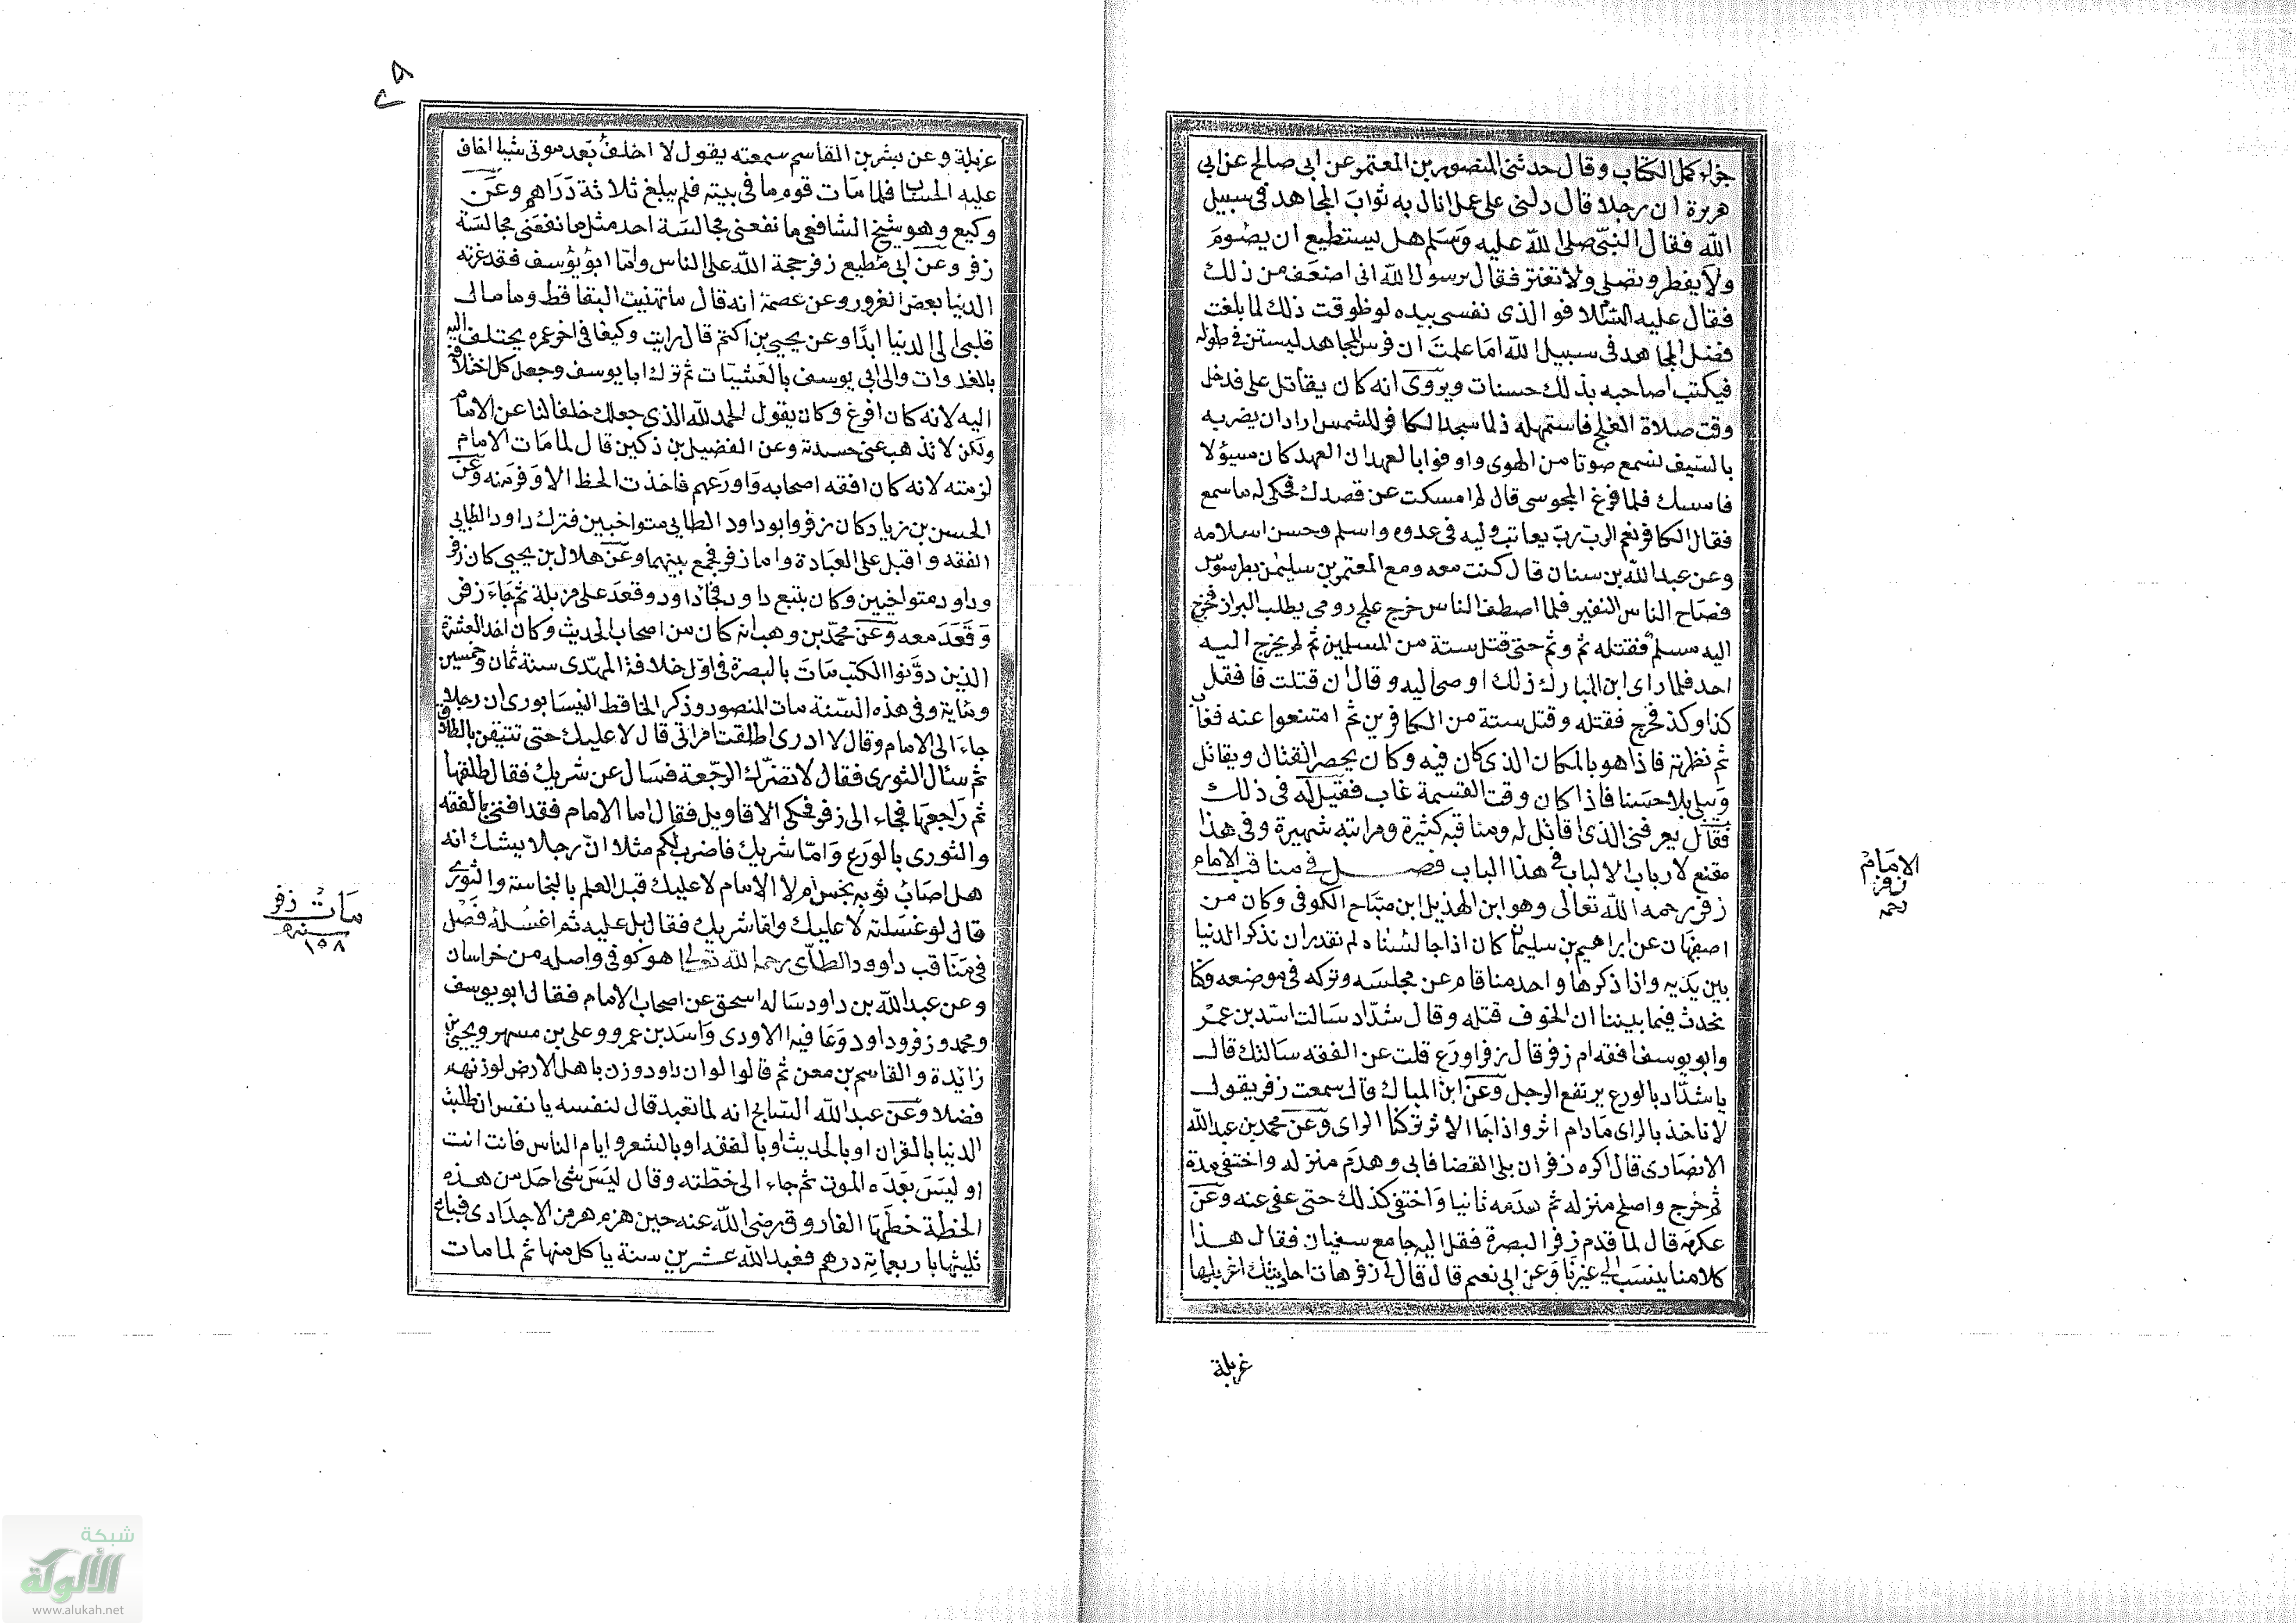 جزاء كمل الكتاب وقال حدثنى المنصور بن المعتمر عن ابى صالح عن ابى
هريرة ان رجلا قال دلنى على عمل انال به ثواب المجاهد فى سبيل
الله فقال النبى صلى الله عليه وسلم هل يستطيع ان يصوم
ولا يفطر وتصلى ولا تفتر فقال يرسول الله انى اضعف من ذلك
فقال عليه السلام فو الذى نفسى بيده لو طوقت ذلك لما بلغت
فضل المجاهد فى سبيل الله اما علمت ان فرس المجاهد ليستن فى طوله
فيكتب لصاحبه بذلك حسنات ويروى انه كان يقاتل على فدخل
وقت صلاة العلج فاستمهله فلما سجد الكافر للشمس اراد ان يضربه
بالسيف فسمع صوتا من الهوى واوفوا بالعهد ان العهد كان مسؤلا
فامسك فلما فرغ المجوسى قال لم امسكت عن قصدك فحكى له ما سمع
فقال الكافر نعم الرب رب يعاتب وليه فى عدوه واسلم وحسن اسلامه
وعن عبد الله بن سنان قال كنت معه ومع المعتمر بن سليمن بطرسوس
فصاح الناس النفير فلما اصطف الناس خرج علج رومى يطلب البراز فخرج
اليه مسلم فقتله ثم وثم حتى قتل ستة من المسلمين ثم لم يخرج اليه
احد فلما راى ابن المبارك ذلك اوصى اليه وقال ان قتلت فافعل
كذا وكذ فخرج فقتله وقتل ستة من الكافرين ثم امتنعوا عنه فغاب
ثم نظرته فاذا هو بالمكان الذى كان فيه وكان يحضر القتال ويقاتل
ويبلى بلاء حسنا فاذا كان وقت القسمة غاب فقيل له فى ذلك
فقال يعرفنى الذى اقاتل له ومناقبه كثيرة ومراتبه شهيرة وفى هذا
مقنع لارباب الالباب فى هذا الباب فصل فى مناقب الامام
زفر رحمه الله تعالى وهو ابن الهذيل ابن صباح الكوفى وكان من
اصفهان عن ابراهيم بن سليمان كان اذا جالسناه لم نقدر ان نذكر الدنيا
بين يديه واذا ذكرها واحد منا قام عن مجلسه وتركه فى موضعه وكنا
نحدث فيما بيننا ان الخوف قتله وقال شداد سالت اسد بن عمر
وابو يوسف افقه ام زفر قال زفر اورع قلت عن الفقه سالتك قال
يا شداد بالورع يرتفع الرجل وعن ابن المبارك قال سمعت زفر يقول
لا ناخذ بالراى ما دام اثر واذا جا الاثر تركنا الراى وعن محمد بن عبد الله
الانصارى قال اكره زفر ان يلى القضا فابى وهدم منزله واختفى مدة
ثم خرج واصلح منزله ثم هدمه ثانيا واختفى كذلك حتى عفى عنه وعن
عكرمة قال لما قدم زفر البصرة فقل اليه جامع سفيان فقال هذا
كلامنا ينسب الى غيرنا وعن ابى نعيم قال قال لى زفر هات احاديثك اغربلها
غربلة
الامام
زفر
رحمه
٢٨
غربلة وعن بشر بن القاسم سمعته يقول لا اخلف بعد موتى شيا اخاف
عليه الحساب فلما مات قوم ما فى بيته فلم يبلغ ثلاثة دراهم وعن
وكيع وهو شيخ الشافعى ما نفعنى مجالسة احد مثل ما نفعنى مجالسة
زفر وعن ابى مطيع زفر حجة الله على الناس واما ابو يوسف فقد غرته
الدنيا بعض الغرور وعن عصمة انه قال ما تمنيت البقا قط وما مال
قلبى الى الدنيا ابدا وعن يحيى بن اكثم قال رايت وكيعا فى اخر عمره يختلف اليه
بالغدوات والى ابى يوسف بالعشيات ثم ترك ابا يوسف وجعل كل اختلافه
اليه لانه كان افرغ وكان يقول الحمد لله الذى جعلك خلفا لنا عن الامام
ولكن لا تذهب عنى حسرته وعن الفضيل بن ذكين قال لما مات الامام
لزمته لانه كان افقه اصحابه واورعهم فاخذت الحظ الاوفر منه وعن
الحسن بن زياد كان زفر وابو داود الطايى متواخيين فترك داود الطايى
الفقه واقبل على العبادة واما زفر فجمع بينهما وعن هلال بن يحيى كان زفر
وداود متواخيين وكان يتبع داود فجاء داود وقعد على مزبلة ثم جاء زفر
وقعد معه وعن محمد بن وهب انه كان من اصحاب الحديث وكان احد العشرة
الذين دونوا الكتب مات بالبصرة فى اول خلافة المهدى سنة ثمان وخمسين
ومائة وفى هذه السنة مات المنصور وذكر الحافظ النيسابورى ان رجلا
جاء الى الامام وقال لا ادرى اطلقت امراتى قال لا عليك حتى تتيقن بالطلاق
ثم سئال الثورى فقال لا تضرك الرجعة فسال عن شريك فقال طلقها
ثم راجعها فجاء الى زفر فحكى الاقاويل فقال اما الامام فقد افتى بالفقه
والثورى بالورع واما شريك فاضرب لكم مثلا ان رجلا يشك انه
هل اصاب ثوبه نجس ام لا الامام لا عليك قبل العلم بالنجاسة والثورى
قال لو غسلته لا عليك واما شريك فقال بل عليه ثم اغسله فصل
فى مناقب داوود الطائى رحمه الله تعالى هو كوفى واصله من خراسان
وعن عبد الله بن داود ساله اسحق عن اصحاب الامام فقال ابو يوسف
ومحمد وزفر وداود وعافية الاودى واسد بن عمرو وعلى بن مسهر ويحيى بن
زائدة والقاسم بن معن ثم قالوا لو ان داود وزن باهل الارض لوزنهم
فضلا وعن عبد الله السايح انه لما تعبد قال لنفسه يا نفس ان طلبت
الدنيا بالقران او بالحديث او بالفقه او بالشعر وايام الناس فانت انت
او ليس بعده الموت ثم جاء الى خطته وقال ليس شى احل من هذه
الخطة خطها الفاروق رضى الله عنه حين هزم هرمز الاجدادى فباع
ثلثها باربعماية درهم فعبد الله عشرين سنة ياكل منها ثم لما مات
مات زفر
سنه
١٥٨
شبكة
الألوكة
www.alukah.net